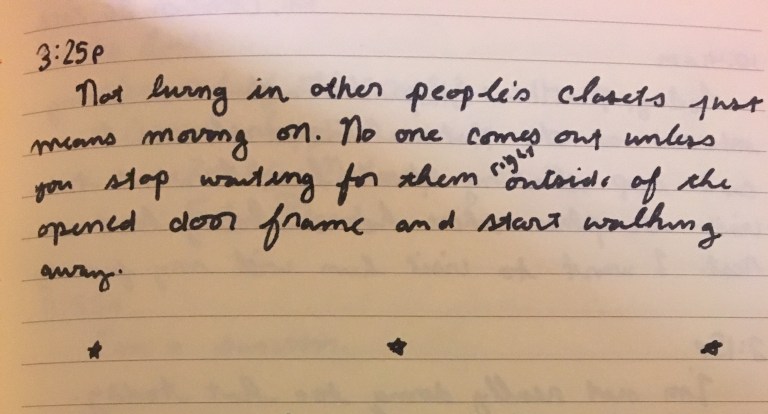 3:25p
Not living in other people's closets just
means moving on. No one comes out unless
you stop waiting for them right outside of the
opened door frame and start walking
away.